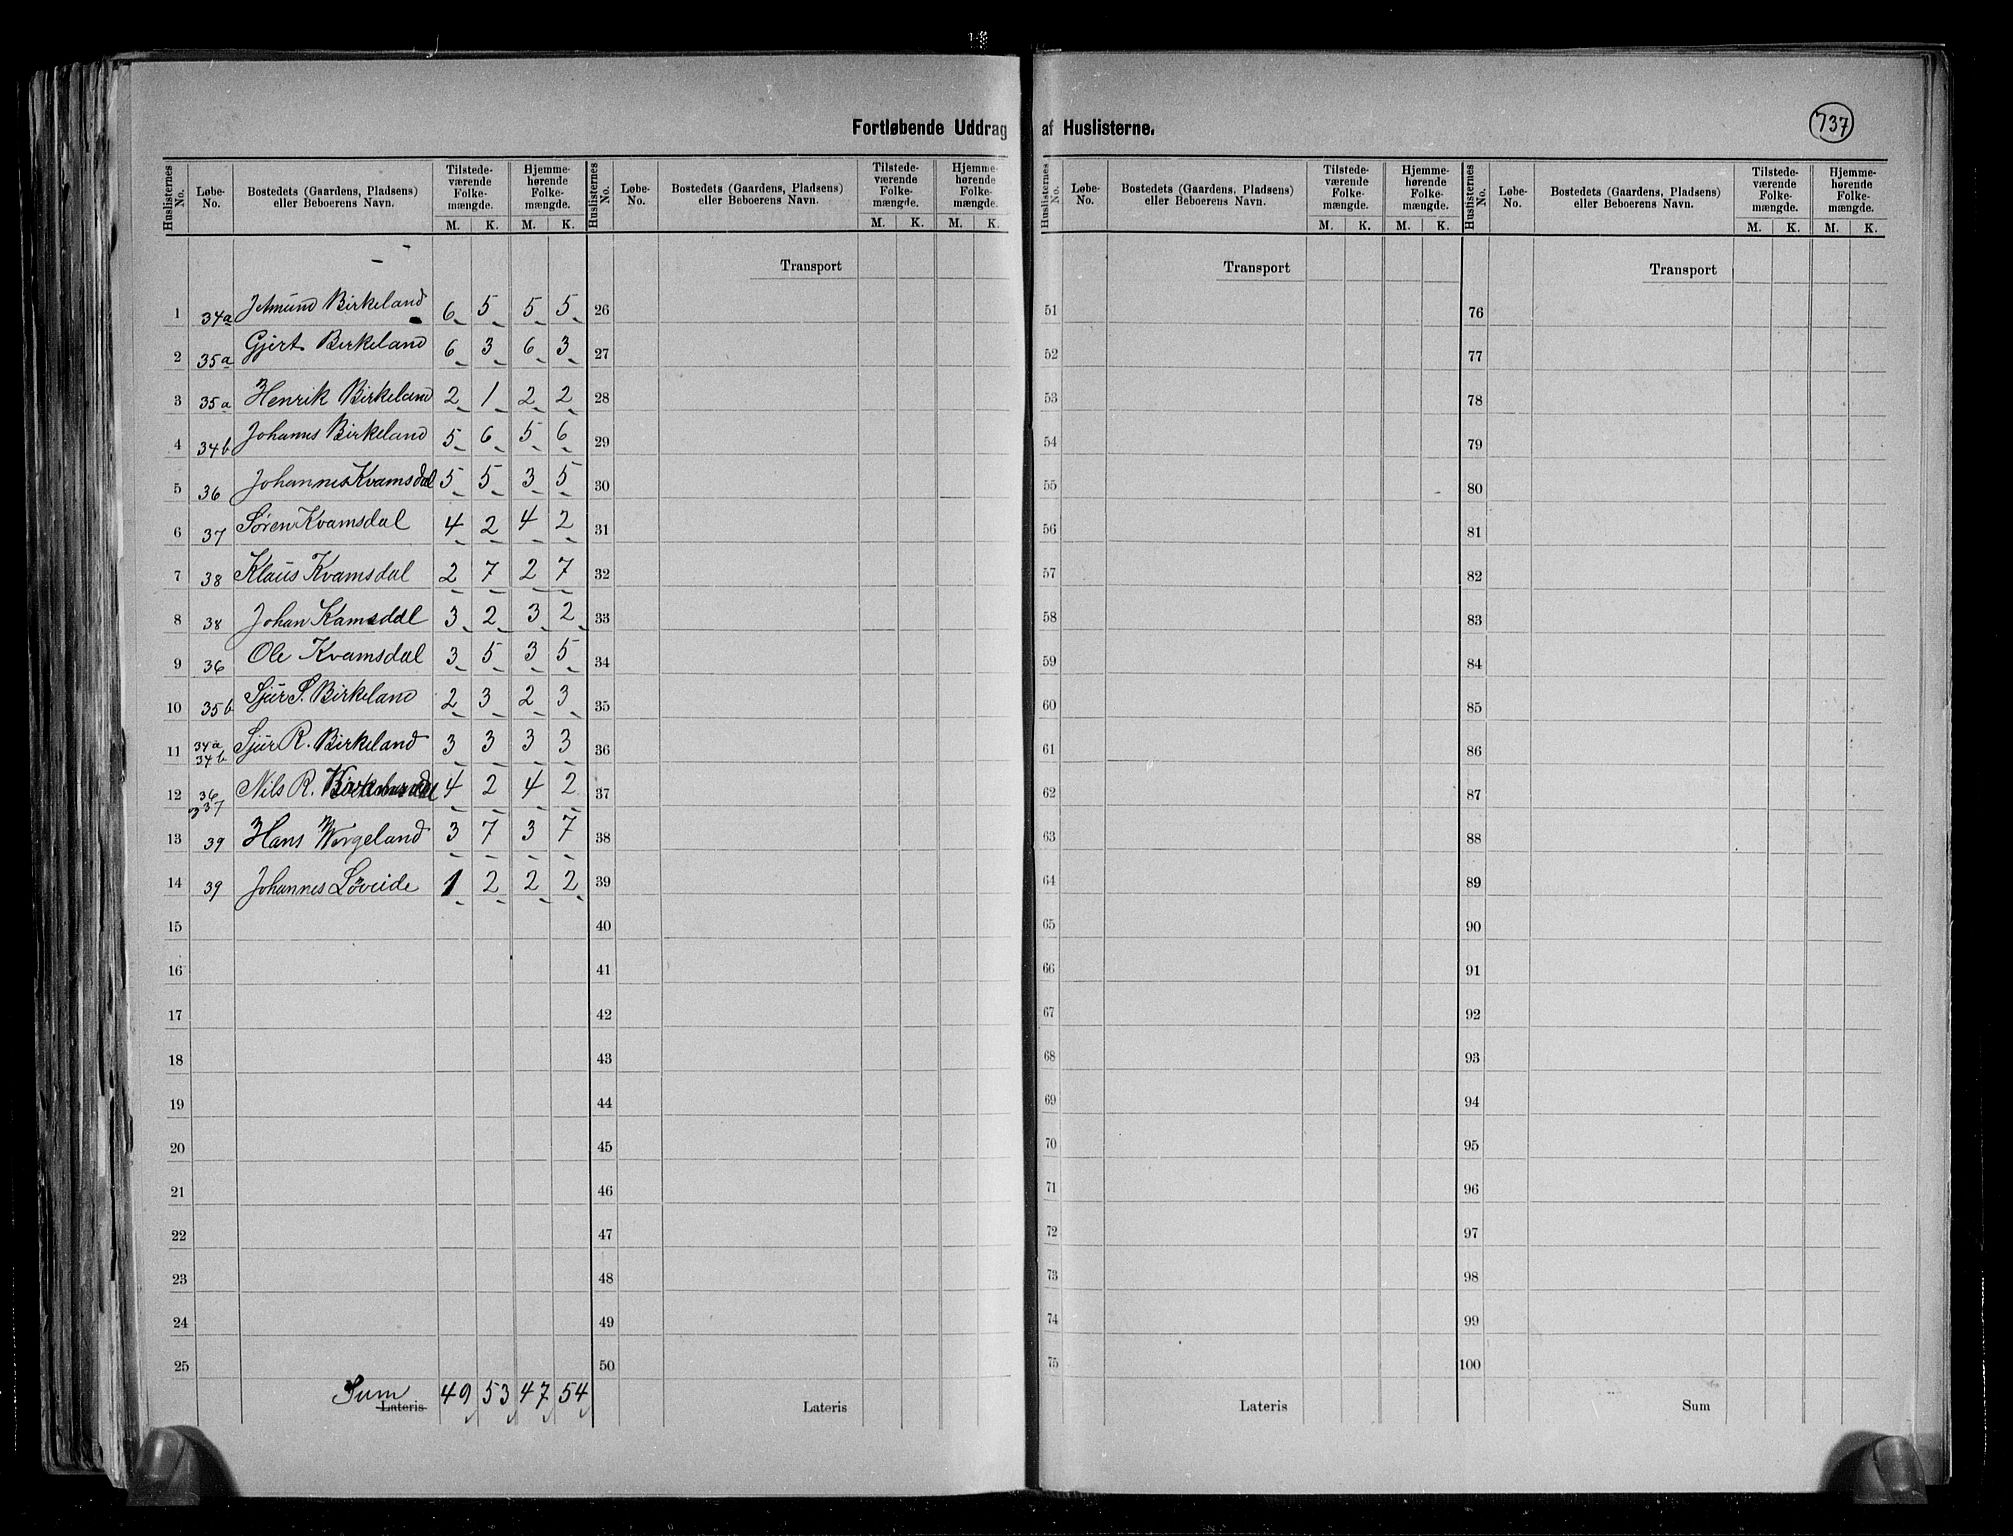 Fortløbende Uddrag af Huslisterne.
737
Huslisternes No. Løbe-No. Bostedets (Gaardens, Pladsens) eller Beboerens Navn. Tilstedeværende Folkemængde. M. K. Hjemmehørende Folkemængde. M. K.
1 34a Jetmund Birkeland 6 5 5 5
2 35a Gjert Birkeland 6 3 6 3
3 35a Henrik Birkeland 2 1 2 2
4 34b Johannes Birkeland 5 6 5 6
5 36 Johannes Kvamsdal 5 5 3 5
6 37 Søren Kvamsdal 4 2 4 2
7 38 Klaus Kvamsdal 2 7 2 7
8 38 Johan Kamsdal 3 2 3 2
9 36 Ole Kvamsdal 3 5 3 5
10 35b Sjur S. Birkeland 2 3 2 3
11 34a 34b Sjur R. Birkeland 3 3 3 3
12 36 37 Nils R. 4 2 4 2
13 39 Hans Wergeland 3 7 3 7
14 39 Johannes Løveide 1 2 2 2
15
16
17
18
19
20
21
22
23
24
25
Sum Lateris 49 53 47 54
Huslisternes No. Løbe-No. Bostedets (Gaardens, Pladsens) eller Beboerens Navn. Tilstedeværende Folkemængde. M. K. Hjemmehørende Folkemængde. M. K.
Transport
26
27
28
29
30
31
32
33
34
35
36
37
38
39
40
41
42
43
44
45
46
47
48
49
50
Lateris
Huslisternes No. Løbe-No. Bostedets (Gaardens, Pladsens) eller Beboerens Navn. Tilstedeværende Folkemængde. M. K. Hjemmehørende Folkemængde. M. K.
Transport
51
52
53
54
55
56
57
58
59
60
61
62
63
64
65
66
67
68
69
70
71
72
73
74
75
Lateris
Huslisternes No. Løbe-No. Bostedets (Gaardens, Pladsens) eller Beboerens Navn. Tilstedeværende Folkemængde. M. K. Hjemmehørende Folkemængde. M. K.
Transport
76
77
78
79
80
81
82
83
84
85
86
87
88
89
90
91
92
93
94
95
96
97
98
99
100
Sum